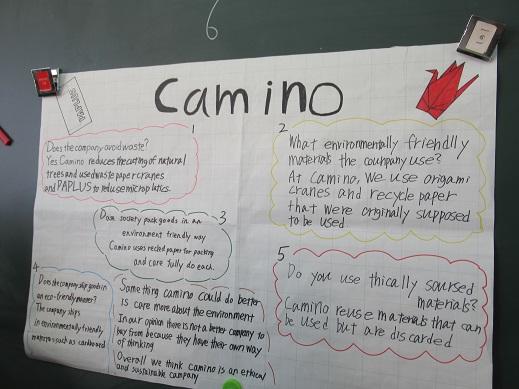 6
Camino
PAPLUS
1
Does the company avoid waste?
Yes Camino reduces the cutting of natural
trees and used waste paper cranes
and PAPLUS to reduse microplatics.
2
What environmentally friendlly
materials the company use?
At Camino, We use origami
cranes and recycle paper
that were orginally supposed
to be used
3
Does society pack goods in an
environment friendly way
Camino uses recled paper for packing
and care fully do each.
4
Does the company ship goods in
an eco-friendly manner?
The company ships
in environmentally friendly
manners such as cardboard
Something camino could do better
is care more about the environment
In our opinion there is not a better company to
buy from because they have their own way
of thinking
Overall we think camino is an ethical
and sustainable company
5
Do you use thically soursed
materials?
Camino reuse materials that can
be used but are discarded